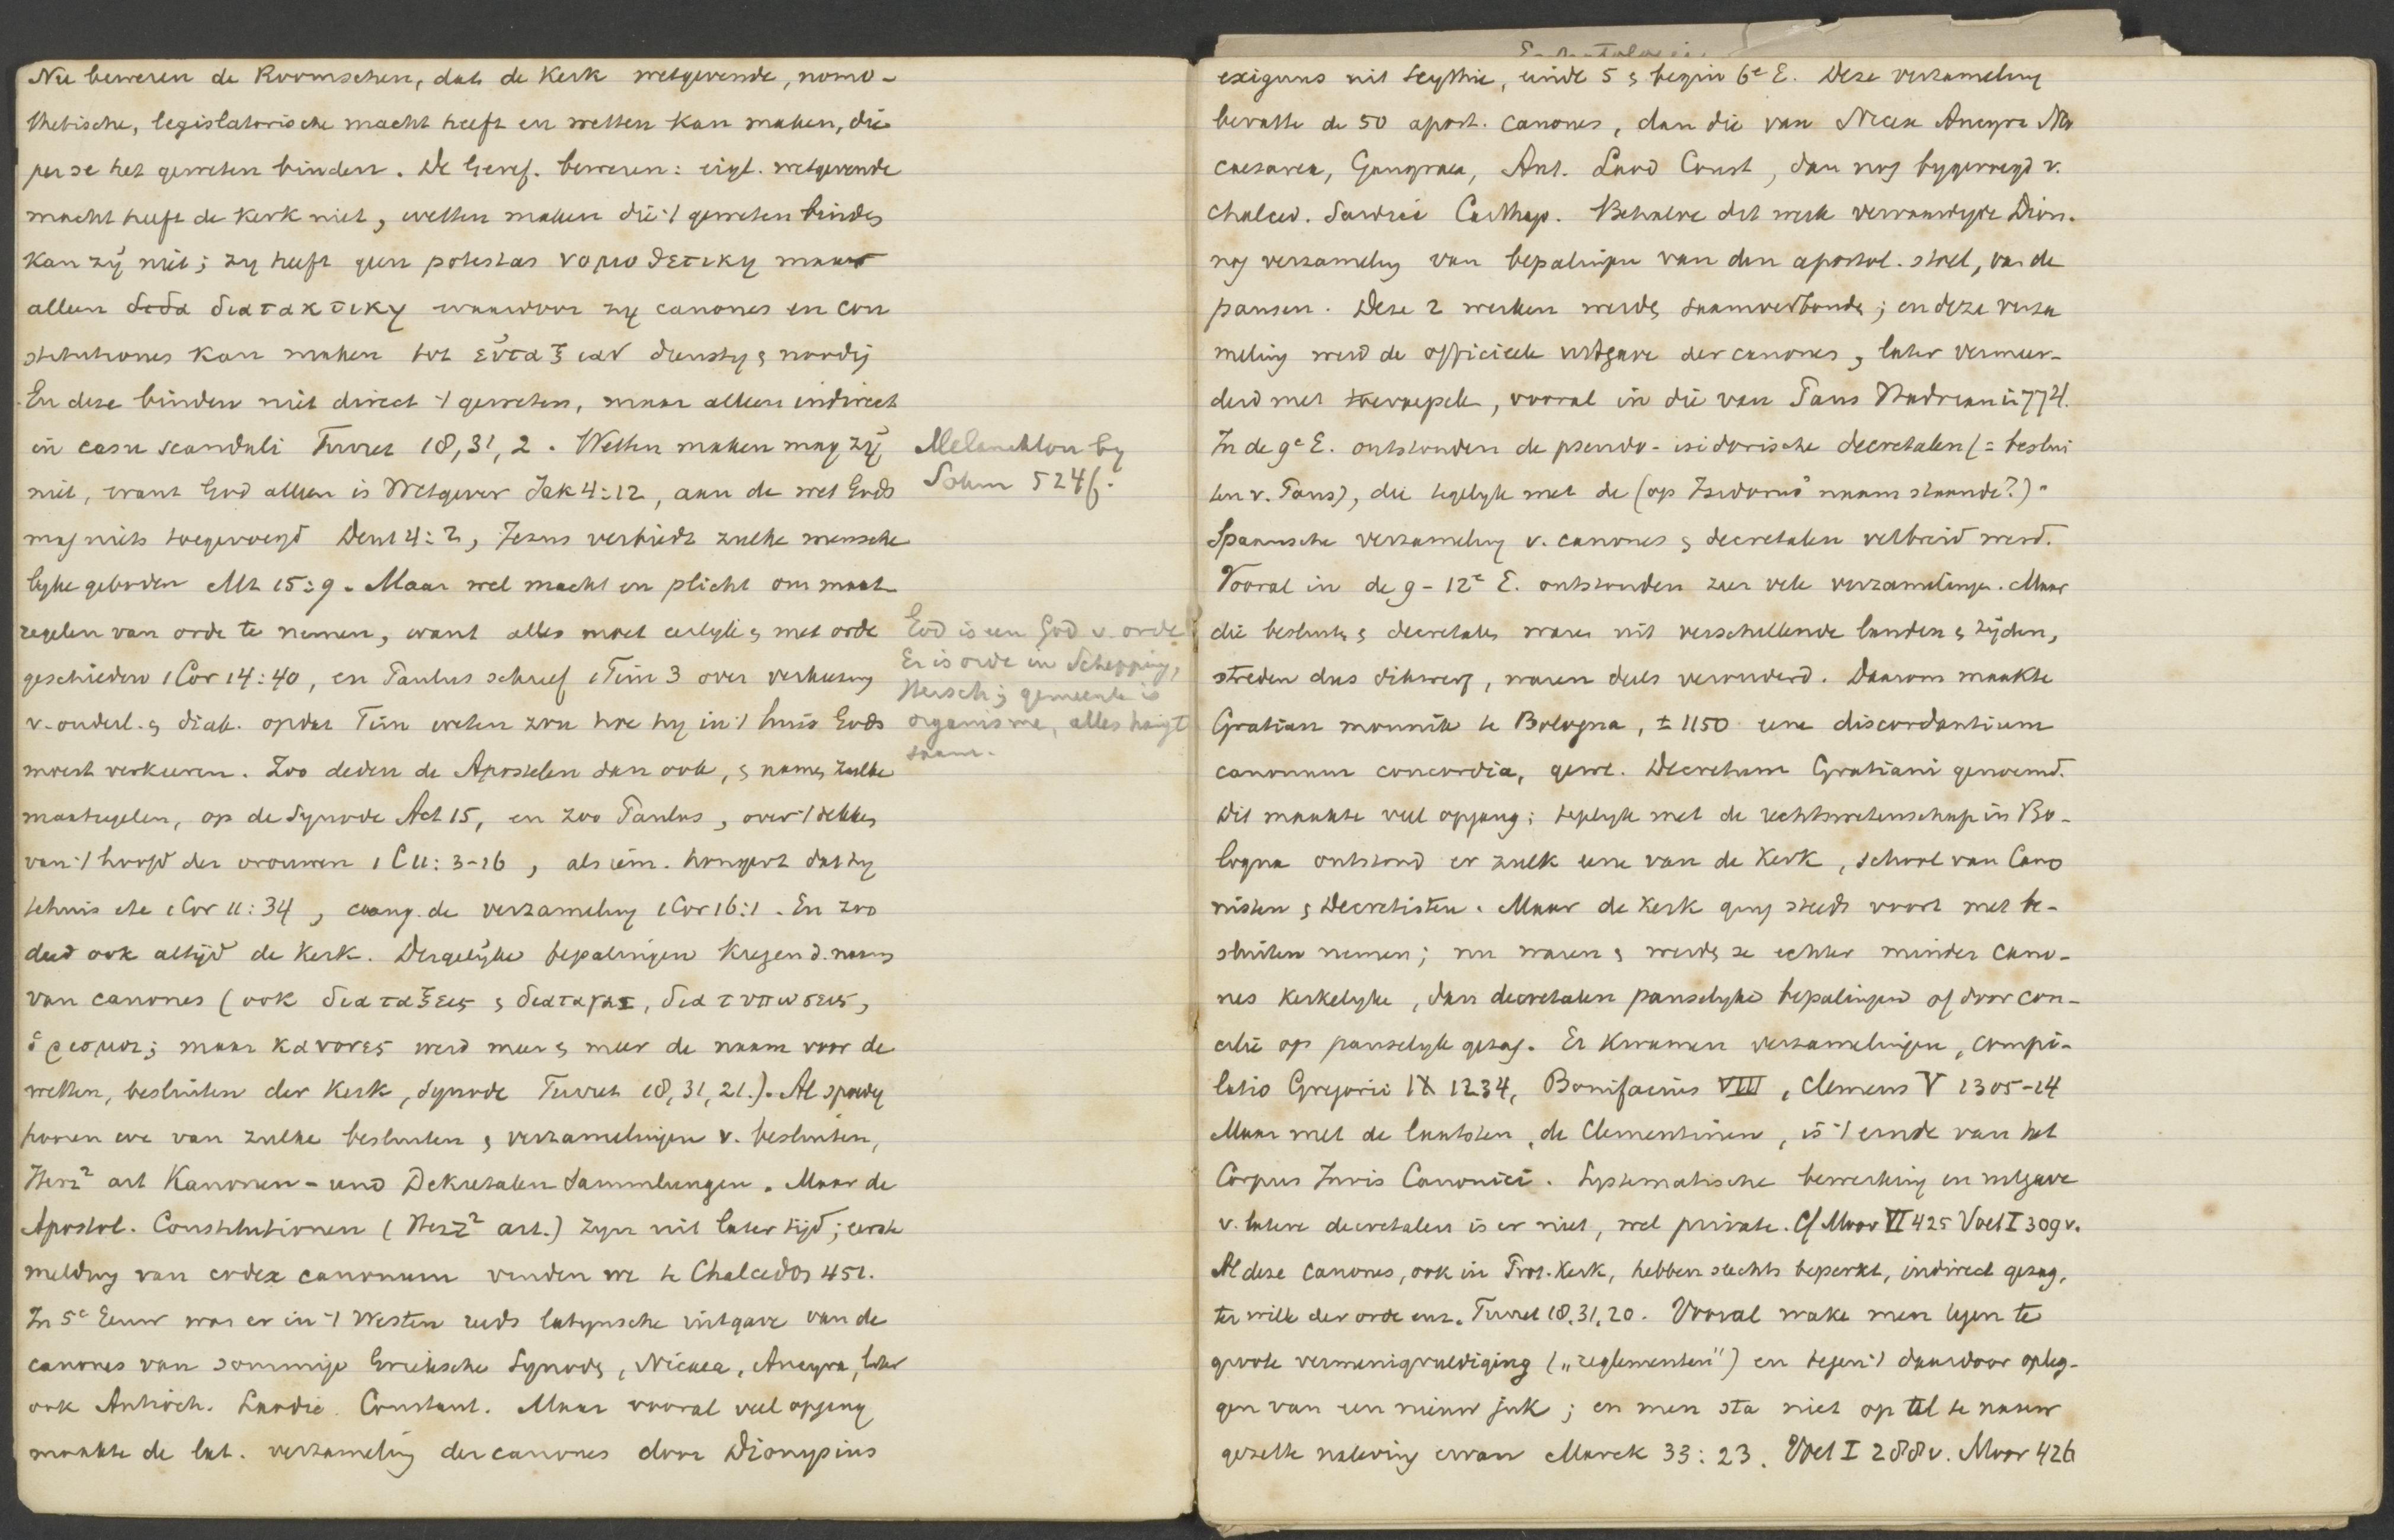 Nu beweren de Roomschen, dat de Kerk wetgevende, nomo-
thetische, legislatorische macht heeft en wetten kan maken, die
per se het geweten binden. De Geref. beweren: eigl. wetgevende
macht heeft de Kerk niet, wetten maken die 't geweten binden
kan zij niet; zy heeft geen potestas νομοθετικη maar
alleen διατακτικη waardoor zy canones en con
stitutiones kan maken tot εὐταξιαν dienstig & noodig
En deze binden niet direct 't geweten, maar alleen indirect
in casu scandali Turret 18,31,2. Wetten maken mag zij
niet, want God alleen is Wetgever Jak 4:12, aan de wet Gods
mag niets toegevoegd Deut 4:2, Jezus verbiedt zulke mensche
lyke geboden Mt 15:9. Maar wel macht en plicht om maat-
regelen van orde te nemen, want alles moet eerlyk & met orde
geschieden 1 Cor 14:40, en Paulus schreef 1 Tim 3 over verkiezing
v. ouderl. & diak. opdat Tim weten zou hoe hy in 't huis Gods
moest verkeeren. Zoo deden de Apostelen dan ook, & namen zulke
maatregelen, op de Synode Act 15, en zoo Paulus, over 't dekken
van 't hoofd der vrouwen 1 C 11:3-16, als iem. hongert dat hy
tehuis ete 1 Cor 11:34, aang. de verzameling 1 Cor 16:1. En zoo
deed ook altijd de Kerk. Dergelijke bepalingen kregen d. naam
van canones (ook διαταξεις & διαταγαι, διατυπωσεις,
ὁρισμοι; maar κανονες werd meer & meer de naam voor de
wetten, besluiten der Kerk, Synode Turret 18,31,21.). Al spoedig
hooren we van zulke besluiten & verzamelingen v. besluiten,
Herz² art Kanonen- und Dekretalen Sammlungen. Maar de
Apostol. Constitutionen (Herz² art.) zyn uit later tijd; eerste
melding van codex canonum vinden we te Chalcedon 451.
In 5e Eeuw was er in 't Westen reeds latynsche uitgave van de
canones van sommige Grieksche Synoden, Nicaea, Ancyra, later
ook Antioch. Laodic. Constant. Maar vooral veel opgang
maakte de lat. verzameling der canones door Dionysius
Melanchton by
Sohm 524f.
God is een God v. orde
Er is orde in Schepping,
Mensch; gemeente is
organisme, alles hangt
saam.
exiguus uit Scythie, einde 5 & begin 6e E. Deze verzameling
bevatte de 50 apost. canones, dan die van Nicea Ancyra Neo
caesarea, Gangraea, Ant. Laod Const, dan nog bygevoegd v.
Chalced. Sardici Carthag. Behalve dit werk vervaardigde Dion.
nog verzameling van bepalingen van den apostol. stoel, van de
pausen. Deze 2 werken werden saamverbonden; en deze verza
meling werd de officieele uitgave der canones, later vermeer-
derd met toevoegsels, vooral in die van Paus Hadrian in 774.
In de 9e E. ontstonden de pseudo-isidorische decretalen (= beslui
ten v. Paus), die tegelyk met de (op Isidorus' naam staande?)
Spaansche verzameling v. canones & decretalen verbreid werd.
Vooral in de 9-12e E. ontstonden zeer vele verzamelingen. Maar
die besluiten & decretalen waren uit verschillende landen & tijden,
streden dus dikwerf, waren deels verouderd. Daarom maakte
Gratian monnik te Bologna, ± 1150 eene discordantium
canonum concordia, gew. Decretum Gratiani genoemd.
Dit maakte veel opgang; tegelyk met de rechtswetenschap in Bo-
logna ontstond er zulk eene van de Kerk, school van Cano
nisten & Decretisten. Maar de Kerk ging steeds voort met be-
sluiten nemen; nu waren & werden ze echter minder cano-
nes kerkelyke, dan decretalen pauselyke bepalingen of door con-
cilie op pauselyk gezag. Er kwamen verzamelingen, compi-
latio Gregorii IX 1234, Bonifacius VIII, Clemens V 1305-14
Maar met de laatsten, de Clementinen, is 't einde van het
Corpus Juris Canonici. Systematische bewerking en uitgave
v. latere decretalen is er niet, wel private. Cf Moor VI 425 Voet I 309v.
Al deze canones, ook in Prot. Kerk, hebben slechts beperkt, indirect gezag,
ter wille der orde enz. Turret 18,31,20. Vooral wake men tegen te
groote vermenigvuldiging („reglementen") en tegen 't daardoor opleg-
gen van een nieuw juk; en men sta niet op al te nauw
gezette naleving ervan Marck 33:23. Voet I 288v. Moor 426